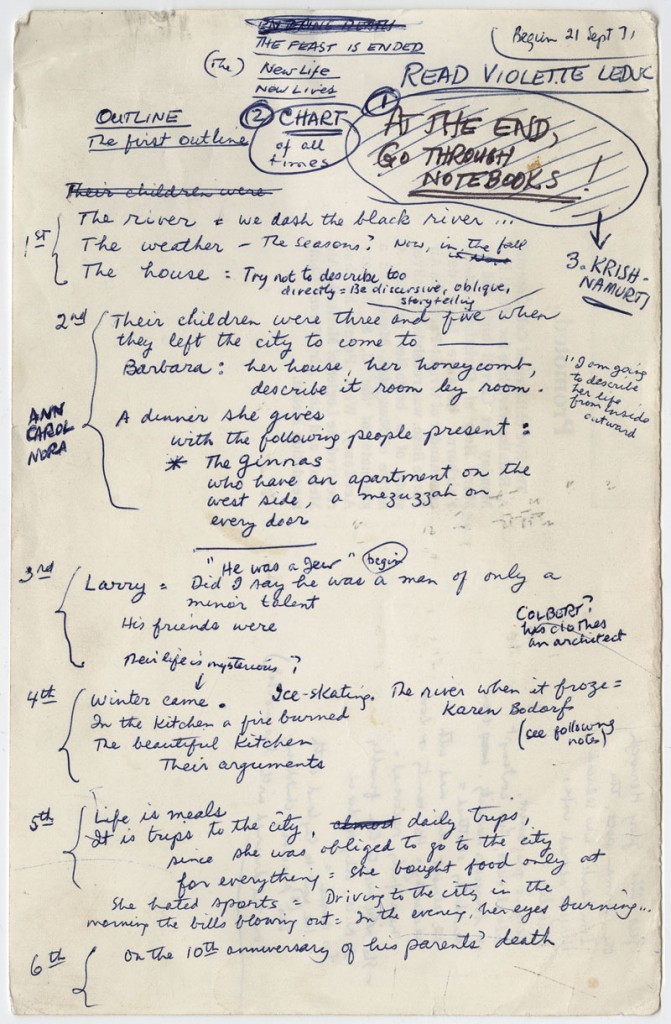 THE FEAST IS ENDED
Begun 21 Sept 71
(The) New Life
New Lives
READ VIOLETTE LEDUC
OUTLINE
The first outline
② CHART
of all
times
①
AT THE END,
GO THROUGH
NOTEBOOKS !
3. KRISH-
NAMURTI
Their children were
1st
The river = we dash the black river ...
The weather – The seasons? Now, in the fall
The house = Try not to describe too
directly = Be discursive, oblique,
storytelling
2nd
Their children were three and five when
they left the city to come to ____
Barbara : her house, her honeycomb,
describe it room by room.
"I am going
to describe
her life
from inside
outward
ANN
CAROL
NORA
A dinner she gives
with the following people present :
* The Ginnas
who have an apartment on the
west side, a mezuzzah on
every door
3rd
"He was a Jew" begin
Larry = Did I say he was a man of only a
minor talent
His friends were
COLBERT?
has clothes
an architect
Their life is mysterious ?
4th
Winter came. Ice-skating. The river when it froze =
Karen Bodorf
In the kitchen a fire burned
(see following
notes)
The beautiful kitchen
Their arguments
5th
Life is meals
It is trips to the city, almost daily trips,
since she was obliged to go to the city
for everything = she bought food only at
She hated sports = Driving to the city in the
morning the bills blowing out = In the evening, her eyes burning...
6th
On the 10th anniversary of his parents' death